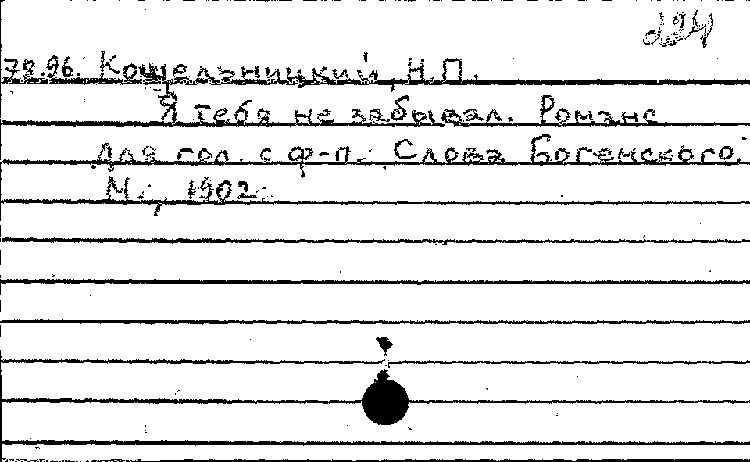 78.96. Кошельницкий, Н.П.
Я тебя не забывал. Романс
для гол. с ф-п. Слова Богемского.
М., 1902.